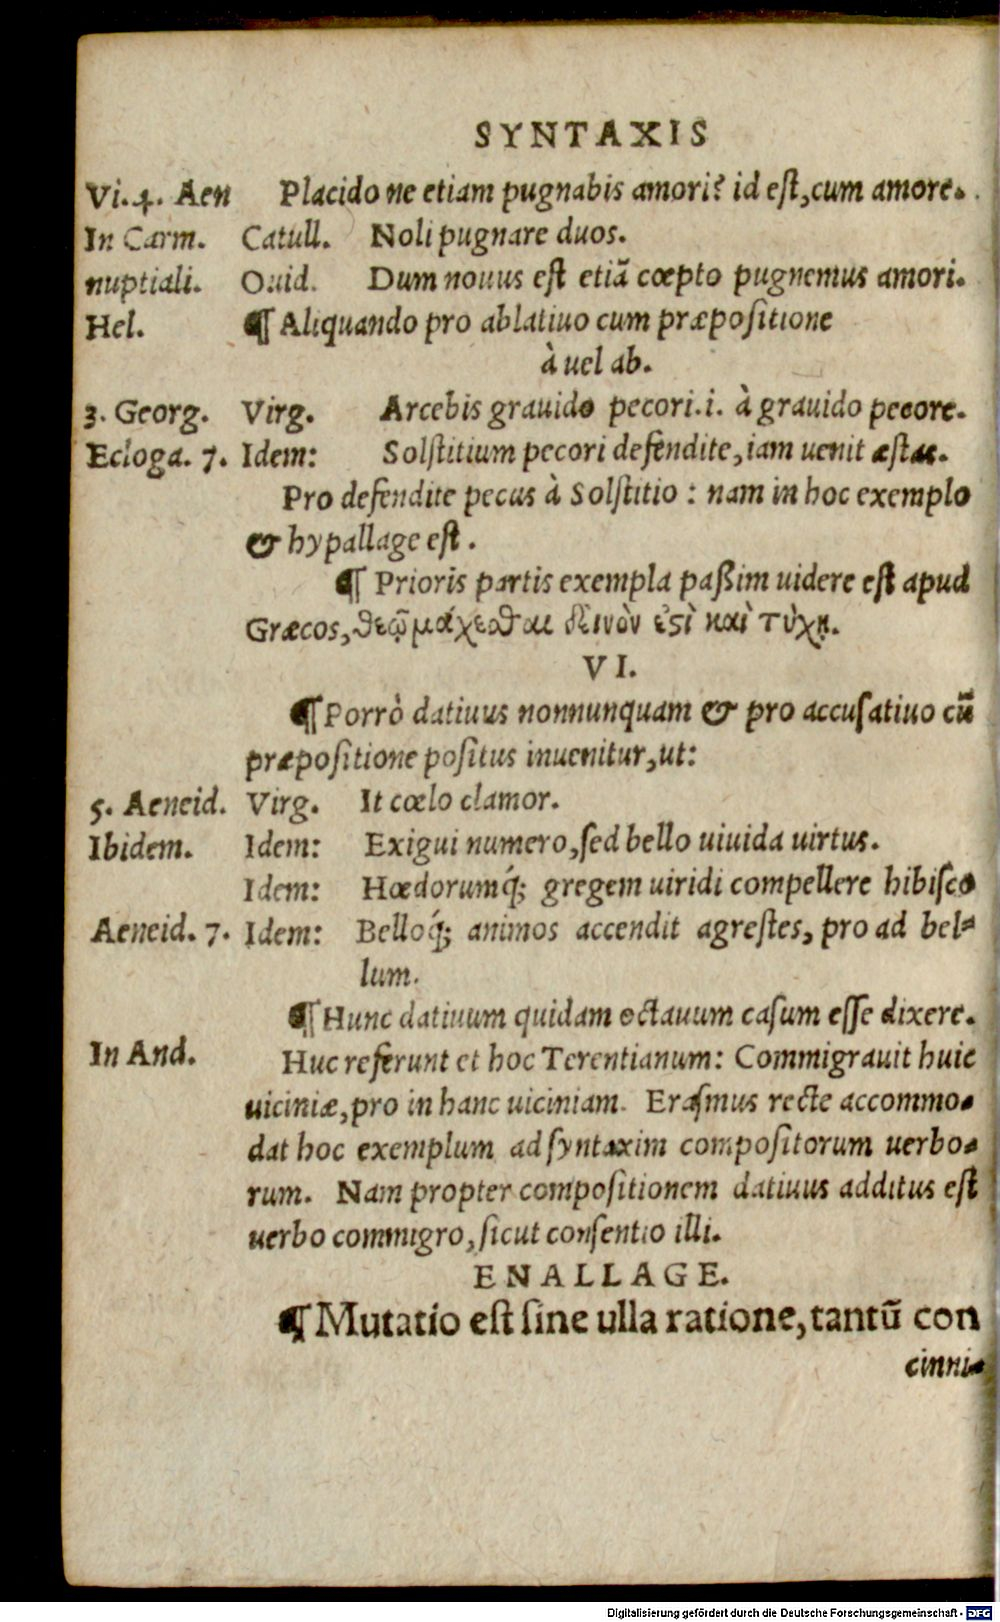 SYNTAXIS
Vi. 4. Aen Placido ne etiam pugnabis amori? id est, cum amore.
In Carm. Catull. Noli pugnare duos.
nuptiali. Ouid. Dum nouus est etiã cœpto pugnemus amori.
Hel. ¶ Aliquando pro ablatiuo cum præpositione
à uel ab.
3. Georg. Virg. Arcebis grauido pecori. i. à grauido pecore.
Ecloga. 7. Idem: Solstitium pecori defendite, iam uenit æstas.
Pro defendite pecus à Solstitio: nam in hoc exemplo
& hypallage est.
¶ Prioris partis exempla paßim uidere est apud
Græcos, θεῷ μάχεσθαι δεινὸν ἐςὶ καὶ τύχῃ.
VI.
¶ Porrò datiuus nonnunquam & pro accusatiuo cũ
præpositione positus inuenitur, ut:
5. Aeneid. Virg. It cœlo clamor.
Ibidem. Idem: Exigui numero, sed bello uiuida uirtus.
Idem: Hœdorumq́; gregem uiridi compellere hibisco
Aeneid. 7. Idem: Belloq́; animos accendit agrestes, pro ad bel-
lum.
¶ Hunc datiuum quidam octauum casum esse dixere.
In And. Huc referunt et hoc Terentianum: Commigrauit huic
uiciniæ, pro in hanc uiciniam. Erasmus recte accommo-
dat hoc exemplum ad syntaxim compositorum uerbo-
rum. Nam propter compositionem datiuus additus est
uerbo commigro, sicut consentio illi.
ENALLAGE.
¶ Mutatio est sine ulla ratione, tantũ con
cinni-
Digitalisierung gefördert durch die Deutsche Forschungsgemeinschaft - DFG